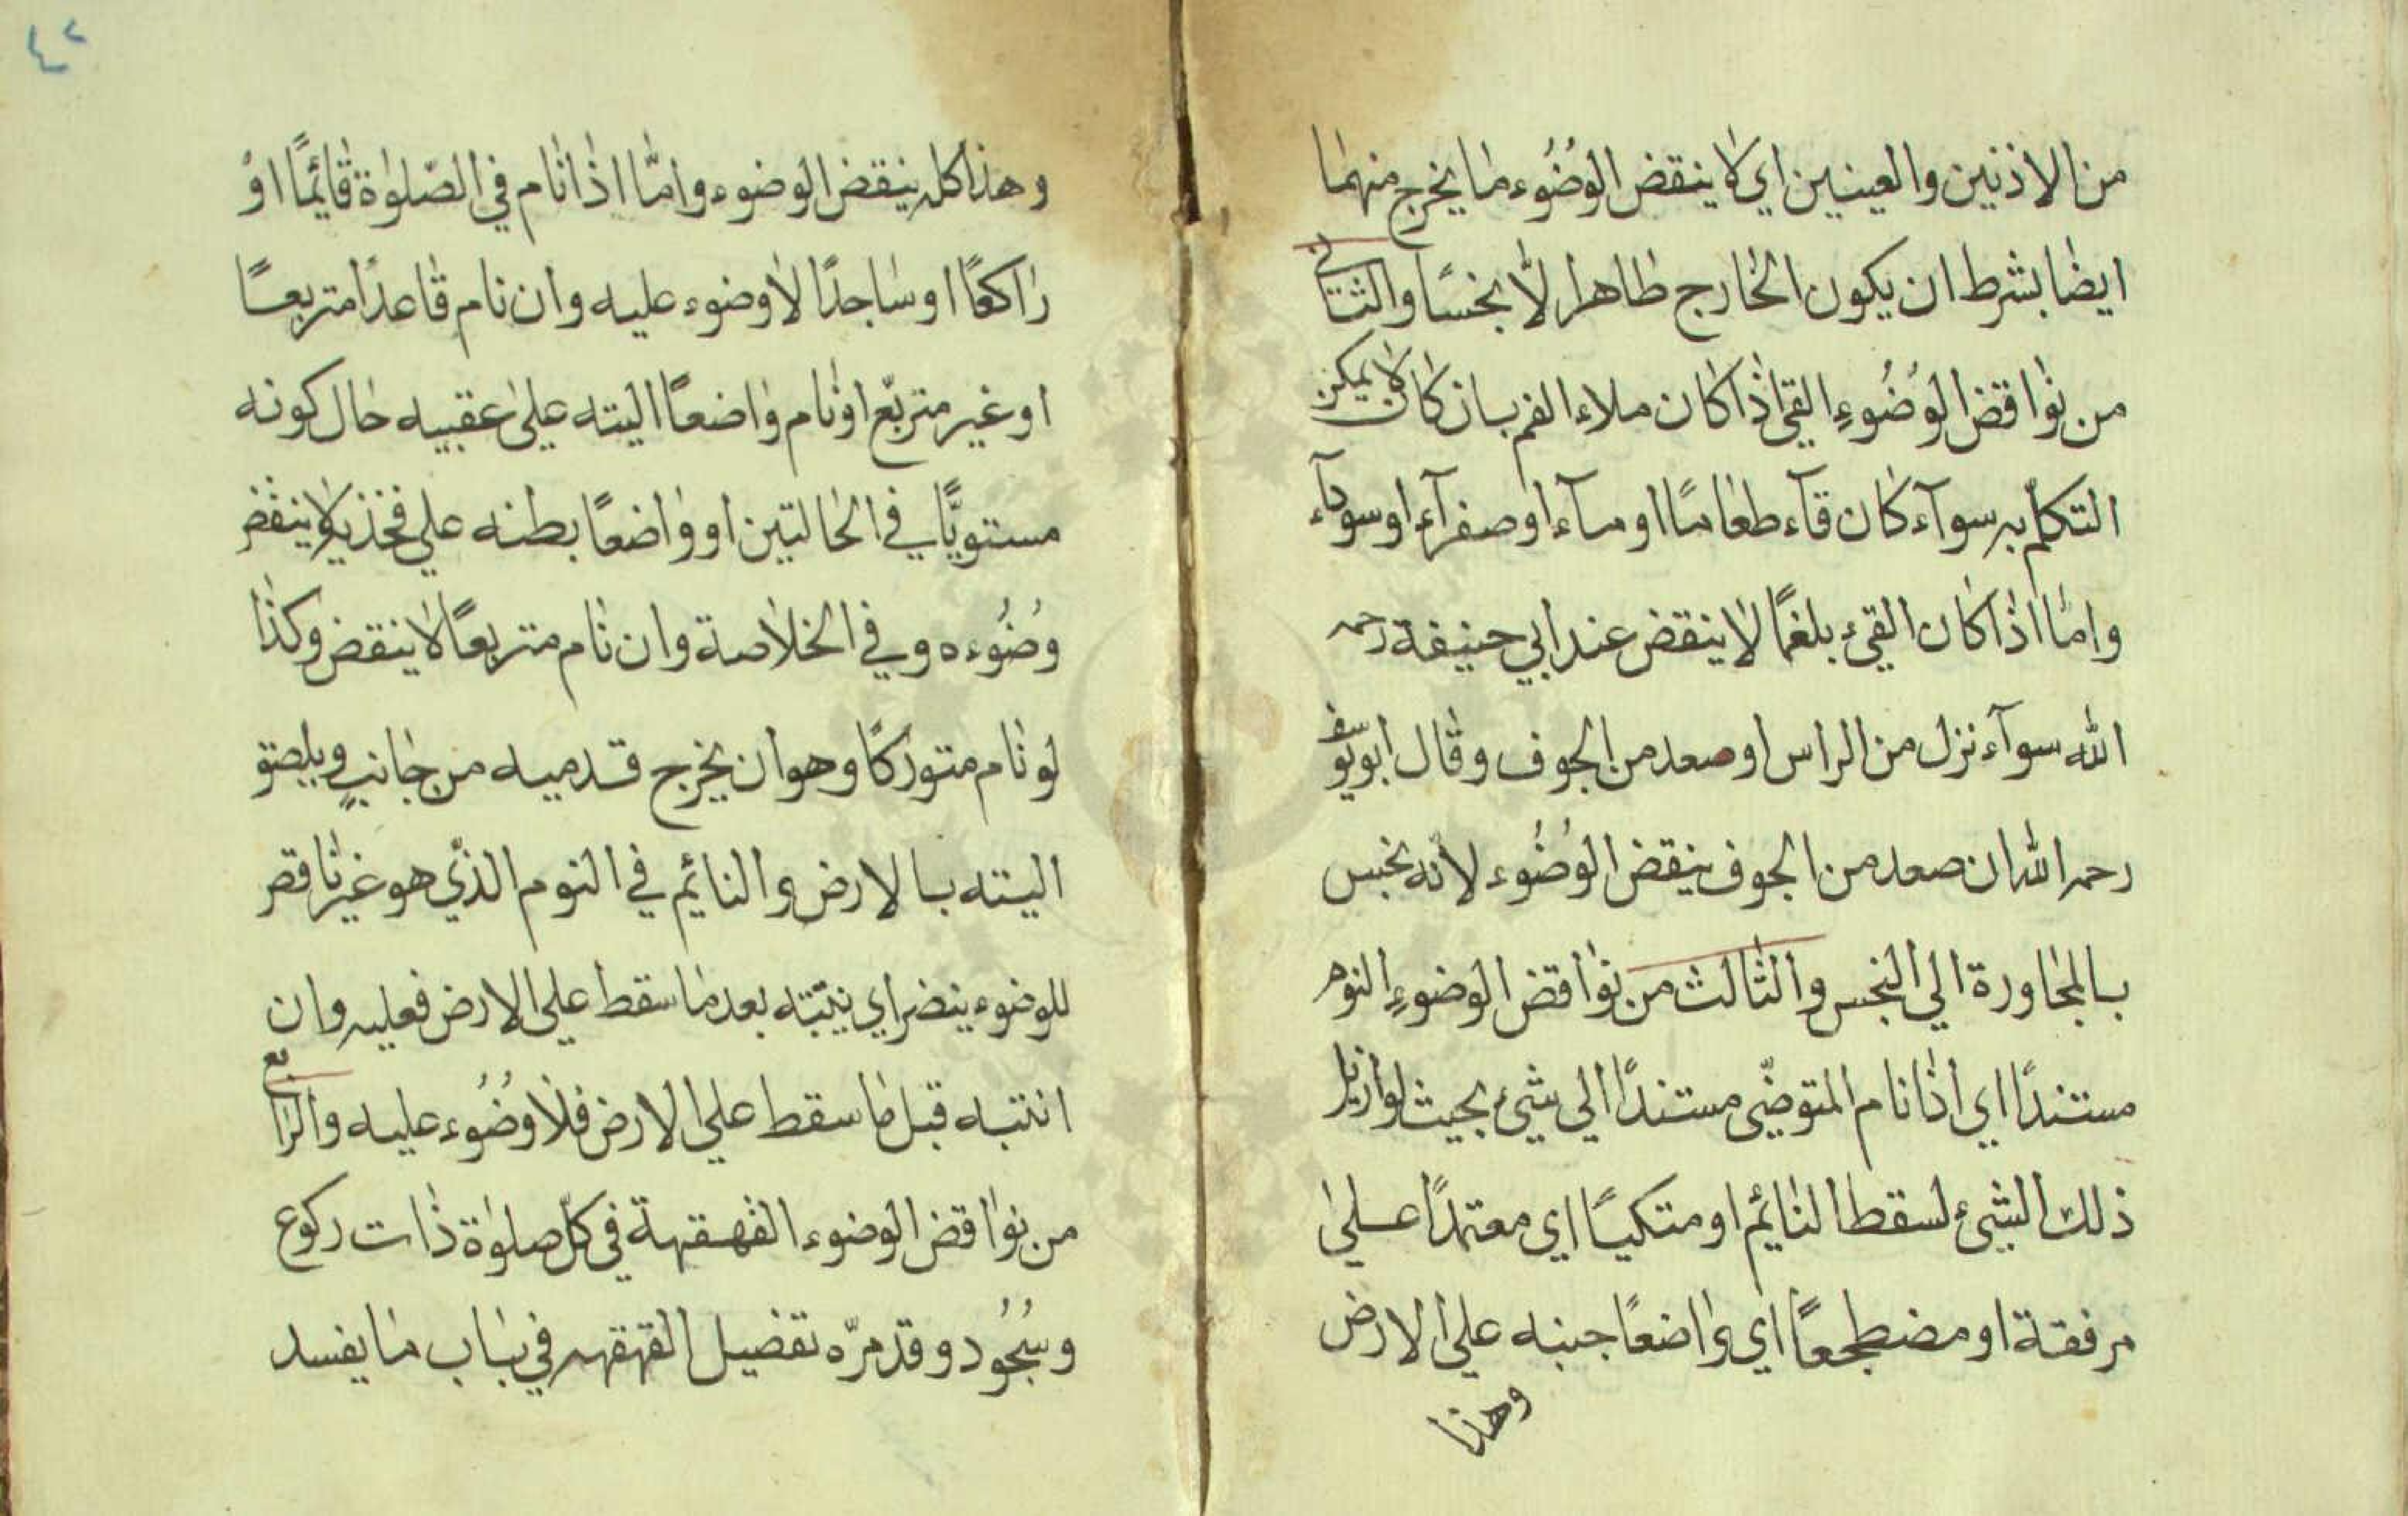 من الاذنين والعينين اي لا ينقض الوُضُوء ما يخرج منهما
ايضا بشرط ان يكون الخارج طاهرا لّا نجسًا والثاني
من نواقض الوُضُوءِ القئ اذا كان ملاء الفم بان كان لا يمكن
التكلّم به سوآء كان قآء طعامًا او مآء او صفرآء او سودآء
واما اذا كان القئ بلغمًا لا ينقض عند ابي حنيفة رحمه
الله سوآء نزل من الراس او صعد من الجوف وقال ابو يوسف
رحمه الله ان صعد من الجوف ينقض الوُضُوء لانّه نجس
بالمجاورة الي النجس والثالث من نواقض الوضوءِ النوم
مستندًا اي اذا نام المتوضّئ مستندًا الي شئ بحيث لو ازيل
ذلك الشئ لسقط النائم او متكيًا اي معتمدًا على
مرفقة او مضطجعًا اي واضعًا جنبه على الارض
وهذا
٤٢
وهذا كله ينقض الوضوء وامّا اذا نام في الصّلوٰة قائمًا اوْ
راكعًا او ساجدًا لا وضوء عليه وان نام قاعدًا متربعًا
او غير متربّع او نام واضعًا اليته على عقبيه حال كونه
مستويًّا في الحالتين او واضعًا بطنه علي فخذيه لا ينقض
وُضُوءه وفي الخلاصة وان نام متربعًا لا ينقض وكذا
لو نام متورّكًا وهو ان يخرج قدميه من جانبٍ ويلصق
اليته بالارض والنائم في النوم الذّي هو غير ناقض
للوضوء ينضر اي ينتبته بعد ما سقط علي الارض فعليه وان
انتبه قبل ما سقط علي الارض فلا وُضُوء عليه والرابع
من نواقض الوضوء القهقهة في كلّ صلوٰة ذات ركوع
وسُجُود وقد مرّه تفضيل القهقهه في باب ما يفسد